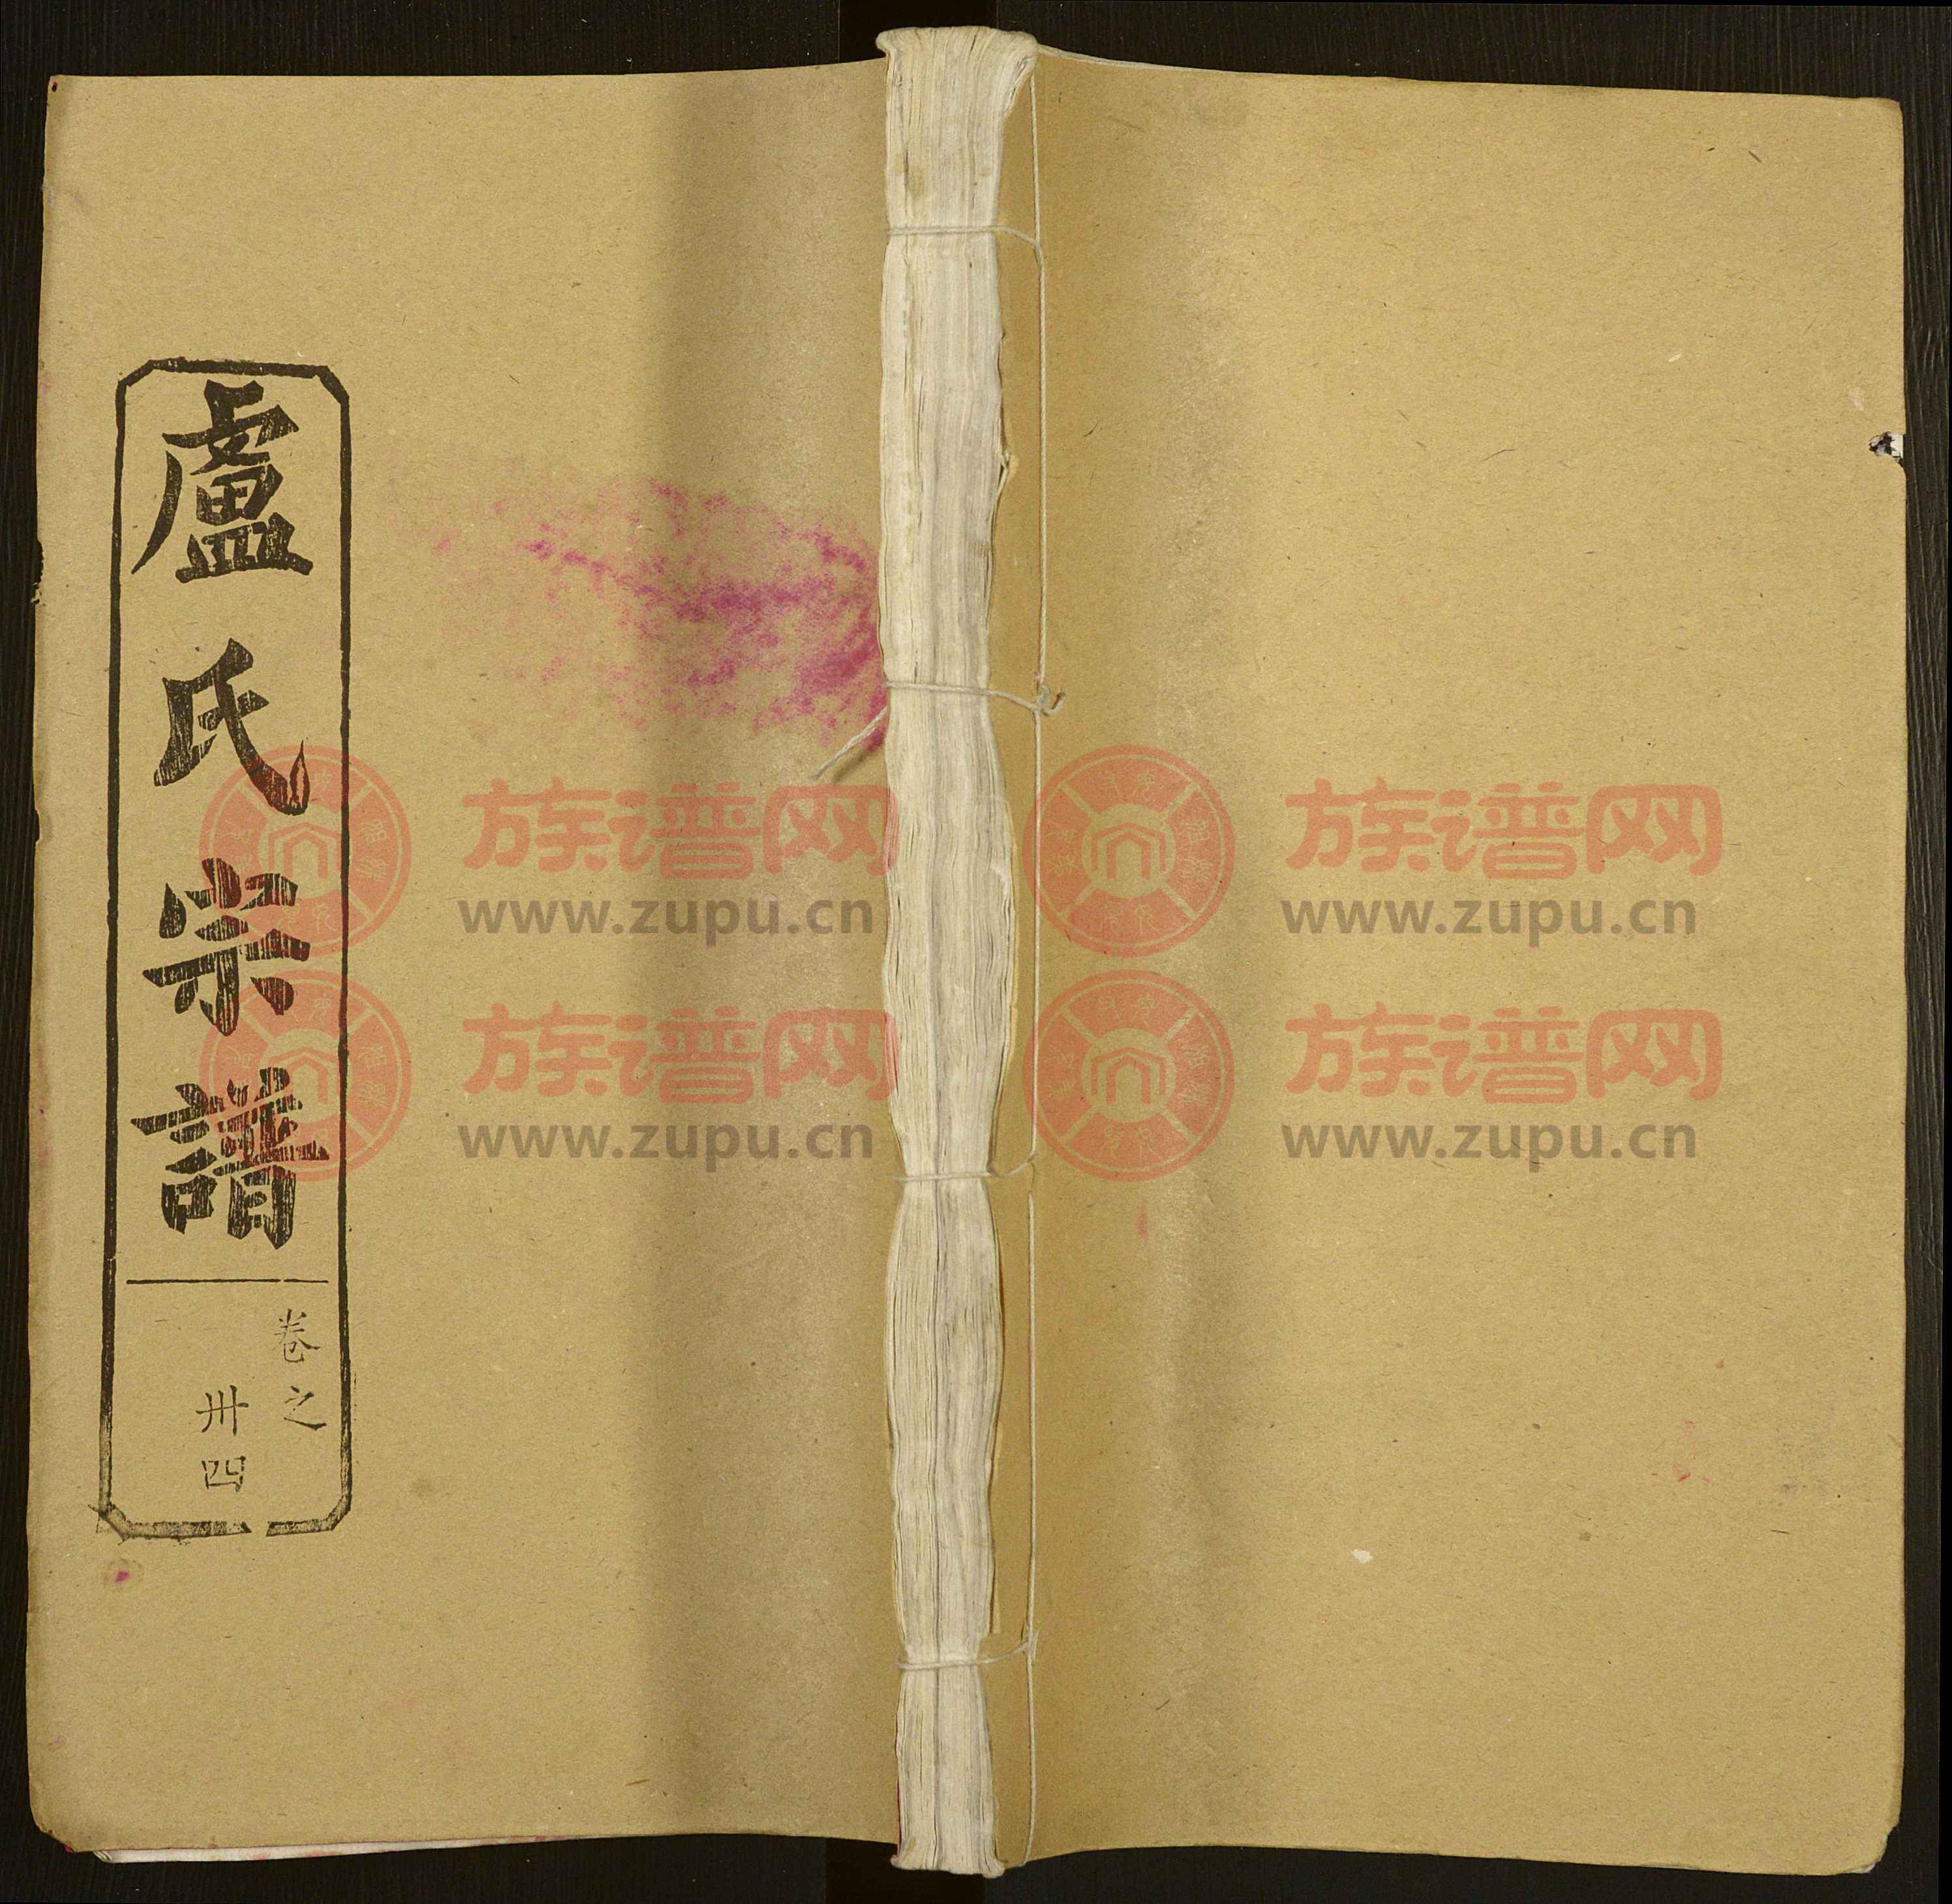 盧氏宗譜
卷之
卅四
族谱网
www.zupu.cn
族谱网
www.zupu.cn
族谱网
www.zupu.cn
族谱网
www.zupu.cn